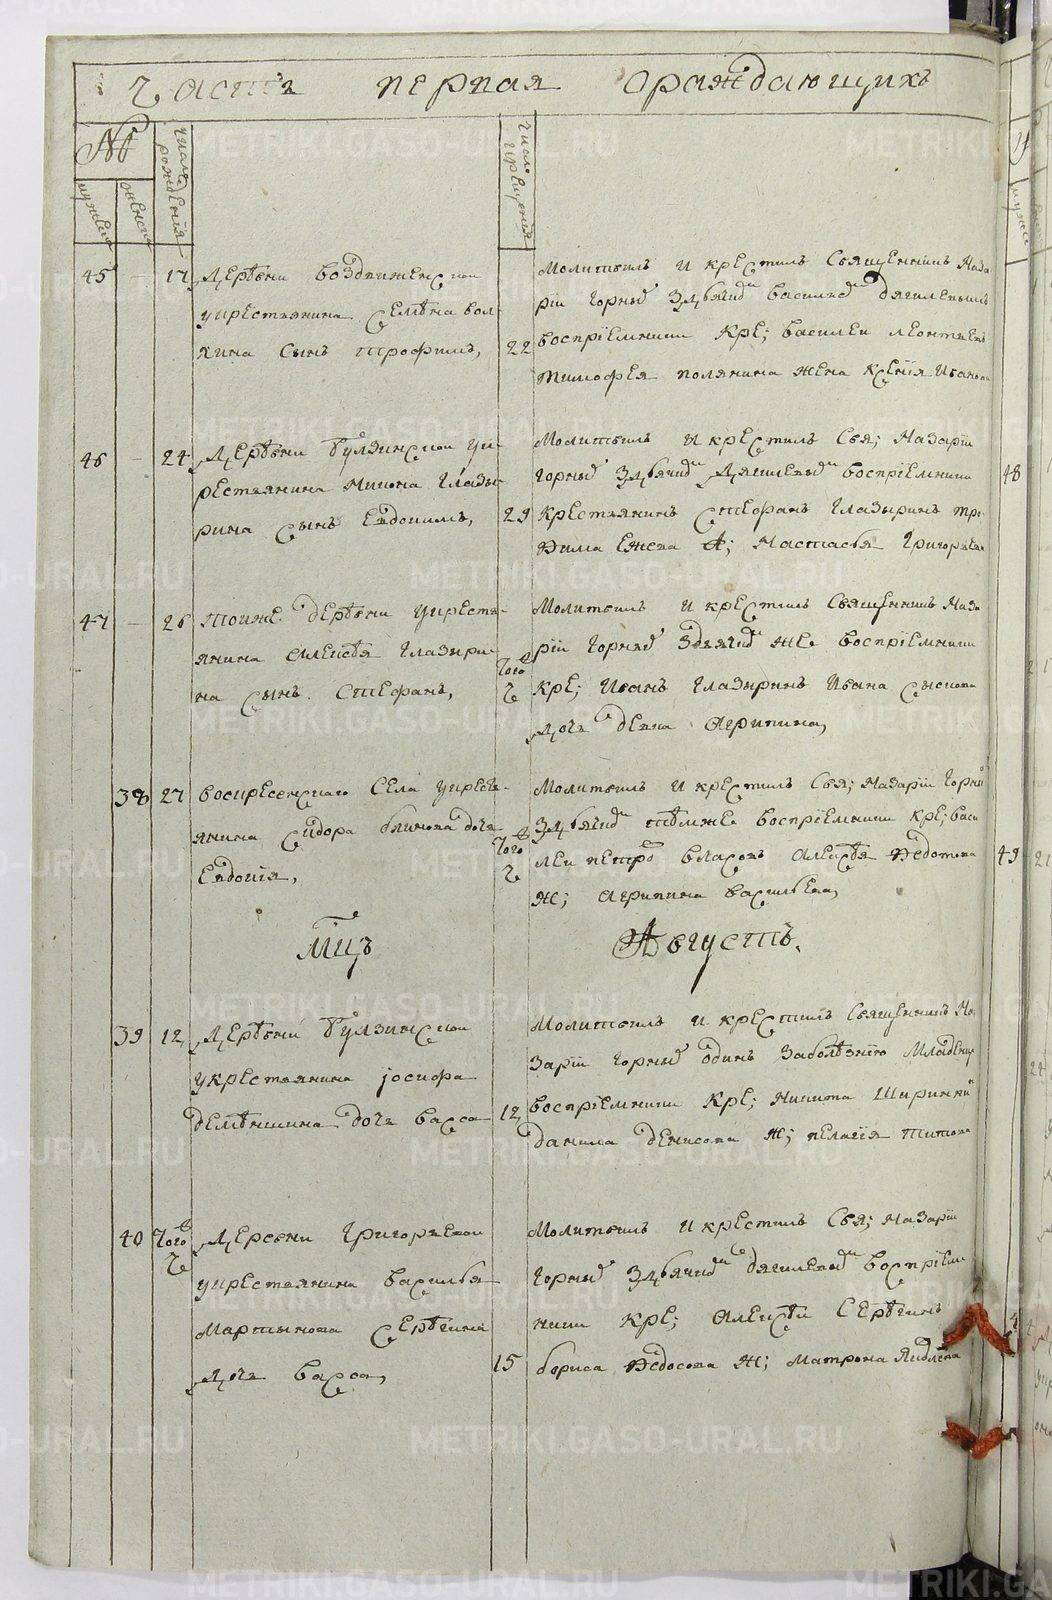 Часть первая ораждающихъ
№
мужеск
женска
число рождения
число крещения
45 — 17 Деревни воздвиженской
укрестьянина Семена вол-
хина сынъ трофимъ,
22
Молитвилъ и крестилъ Священникъ Наза
рїи Горных здьячко василiем дягилевымъ
воспрїемники кре; василеи леонтьевъ
тимофея полянина жена ксенїя Иванова
46 — 24 Деревни булзинскои ук-
рестьянина Микона Глазы-
рина сынъ Евдокимъ,
29
Молитвилъ и крестилъ Свя; Назарїи
Горных здьячко Дягилевым воспрїемники
крестьянинъ Стефанъ Глазыринъ
Настасья Григорьева
47 — 26 тоиже деревни укресть-
янина алексея Глазыри-
на сынъ Стефанъ,
того ч
Молитвилъ и крестилъ Священникъ Наза
рїи Горных здьячко же воспрїемники
кре; Иванъ Глазыринъ Ивана
дочь девка агрипина,
38 27 воскресенскаго Села укресть-
янина Сидора блинова дочь
Евдокїя,
того ч
Молитвилъ и крестилъ Свя; Назарїи Горных
здьячко темже воспрїемники кре; васи
леи петро власовъ алексея Федотова
ж; агрипина васильева,
Мцъ Августъ.
39 12 Деревни булзинскои
укрестьянина іосифа
деменшина дочь васса
12
Молитвилъ и крестилъ Священникъ На
зарїи Горных одинъ заболезнию Младенца
воспрїемники кре; Никита Ширинкин
данила денисова ж; пелагїя титова
40 того ч Деревни Григорьевои
укрестьянина василья
Мартынова Серегина
дочь васса,
15
Молитвилъ и крестилъ Свя; Назарїи
Горных здьячко дягилевым воспрїем
ники кре; алексеи Серегинъ
бориса Федосова ж; матрона Яковлева
48
49
METRIKI.GASO-URAL.RU